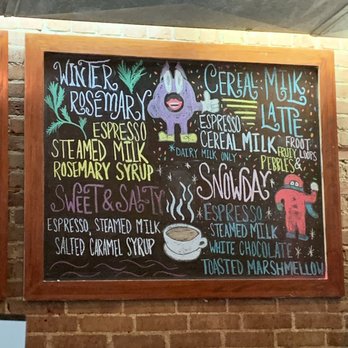 WINTER
ROSEMARY
ESPRESSO
STEAMED MILK
ROSEMARY SYRUP
CEREAL MILK
LATTE
ESPRESSO
CEREAL MILK
*DAIRY MILK ONLY
FROOT
LOOPS
FRUITY
PEBBLES &
SWEET & SALTY
ESPRESSO, STEAMED MILK
SALTED CARAMEL SYRUP
SNOWDAY
ESPRESSO
STEAMED MILK
WHITE CHOCOLATE
TOASTED MARSHMELLOW